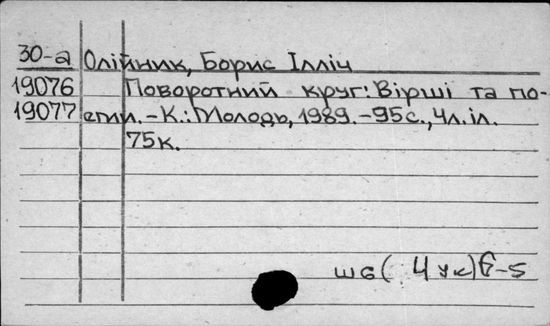 30-а Олійник, Борис Ілліч
19076 Поворотний круг: Вірші та по-
19077 еми. – К.: Молодь, 1989. – 95 с., 4 л. іл.
75к.
шб( 4 Ук)6-5